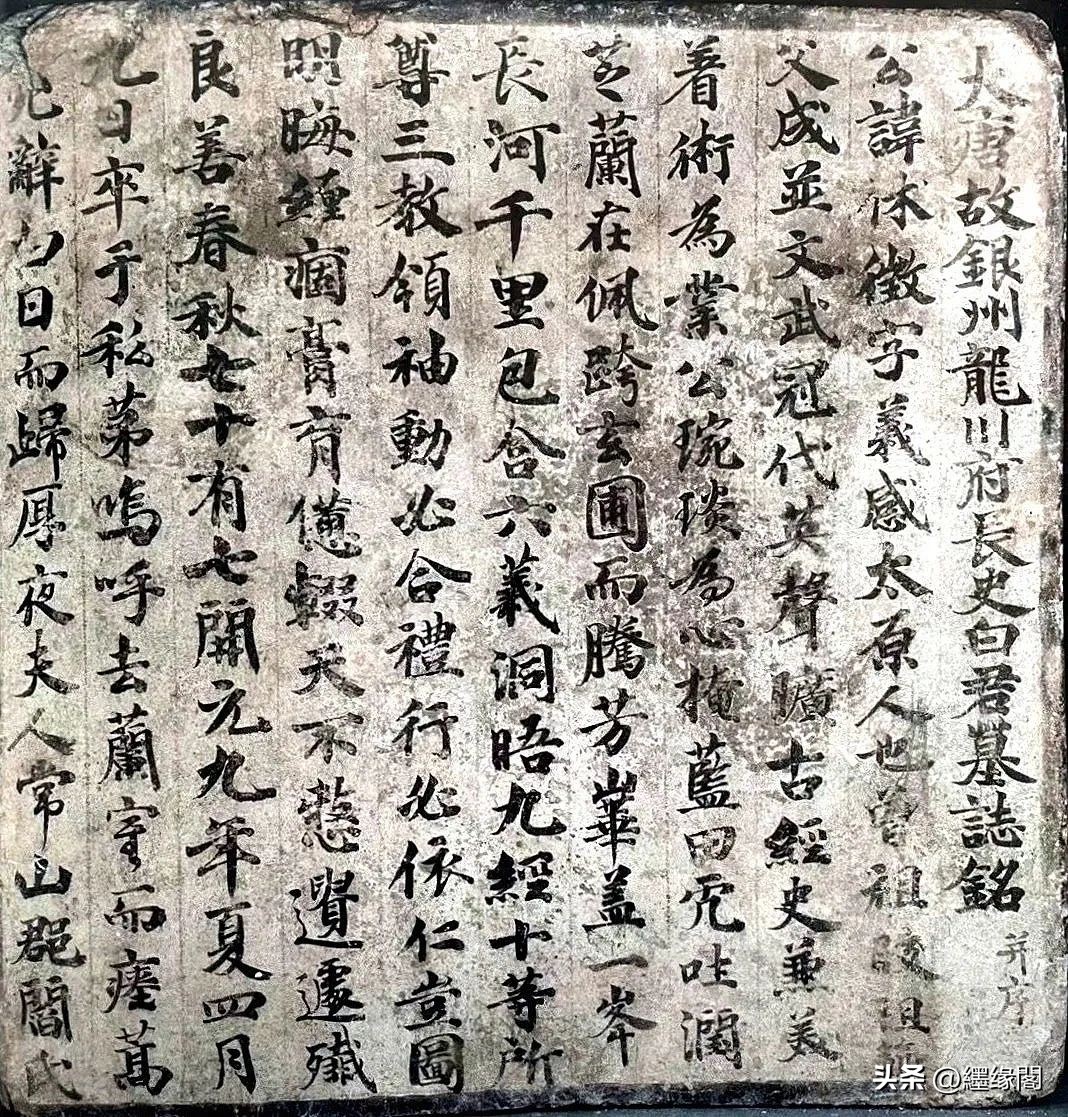 大唐故銀州龍川府長史白君墓誌銘并序
公諱休徵字義感太原人也曾祖陵祖
父成並文武冠代英聲曠古經史兼美
着術為業公琬琰為心掩藍田而吐潤
芝蘭在佩跨玄圃而騰芳崋盖一岑
長河千里包含六義洞晤九經十等所
尊三教領袖動必合禮行必依仁豈圖
明晦纏痼膏肓僊輟天不憖遺遽殲
良善春秋七十有七開元九年夏四月
九日卒于私苐嗚呼去蘭室而瘞蒿
辭白日而歸厚夜夫人常山郡閻氏
头条 @纆缘閣